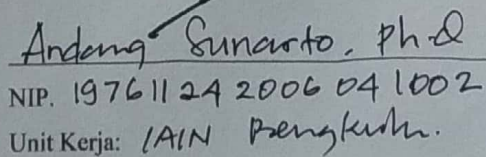 Andang Sunarto, Ph.D
NIP. 19761124 2006 04 1002
Unit Kerja: IAIN Bengkulu.